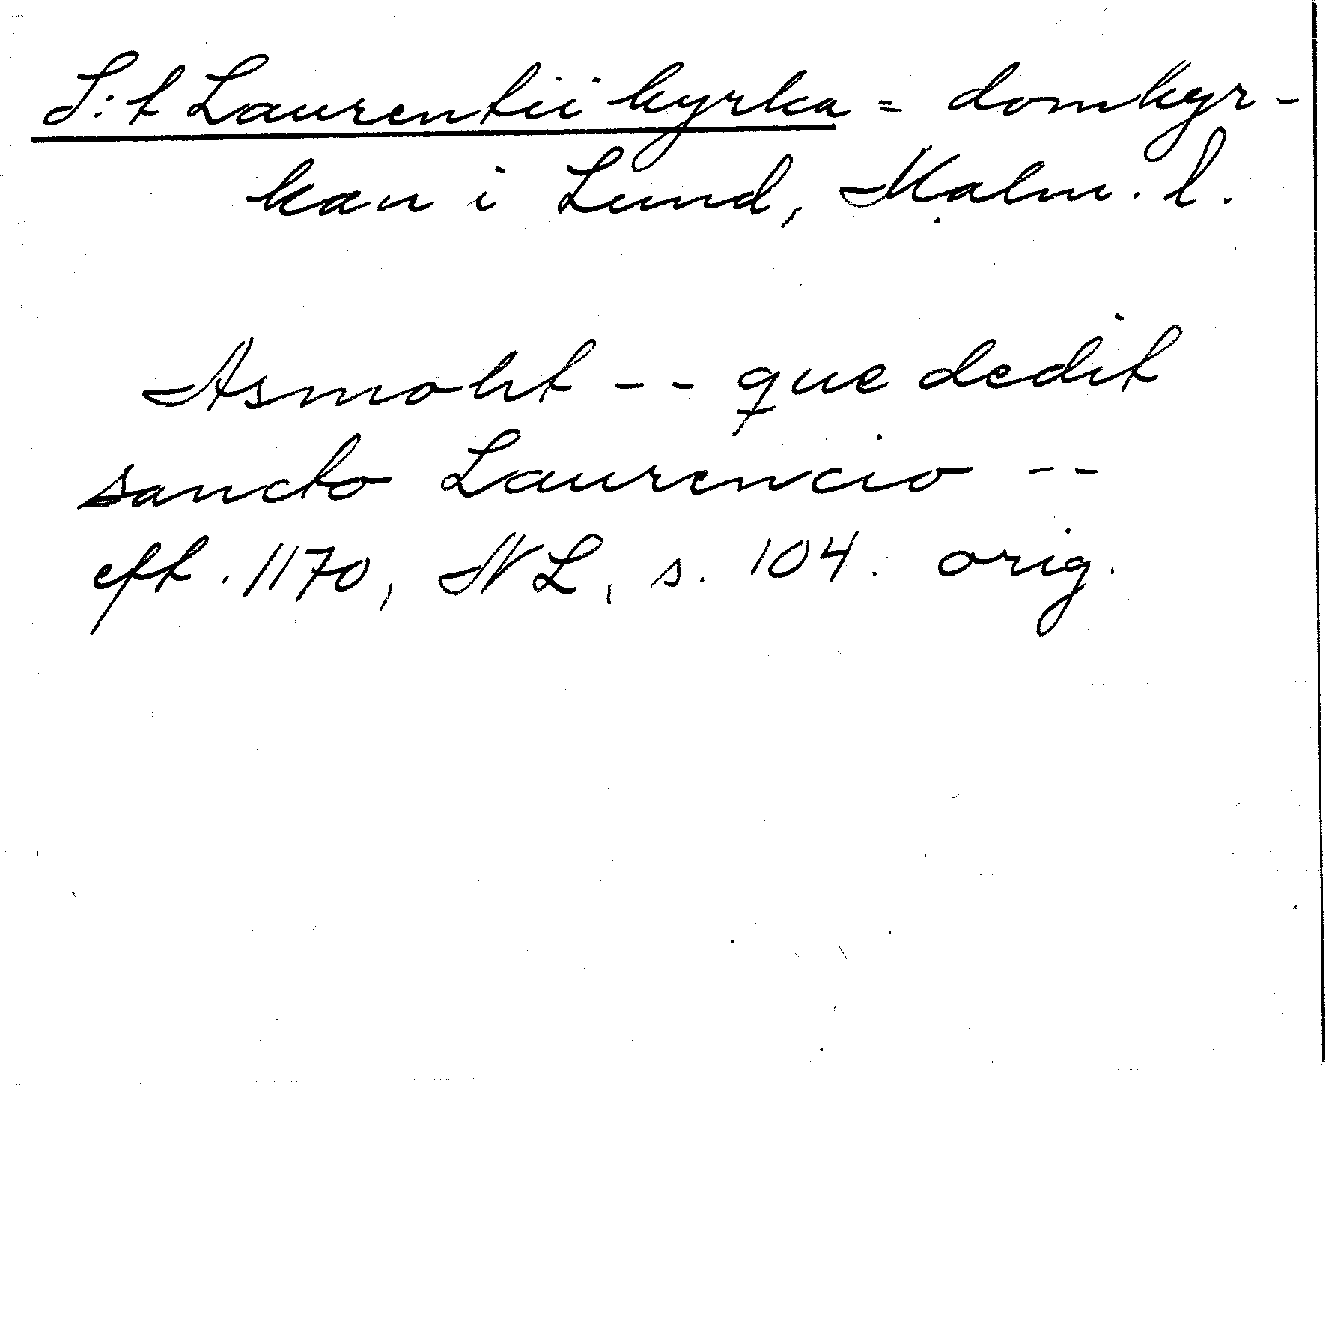 S:t Laurentii kyrka = domkyr-
kan i Lund, Malm. l.
Asmoht -- que dedit
sancto Laurencio --
eft. 1170, NL, s. 104. orig.